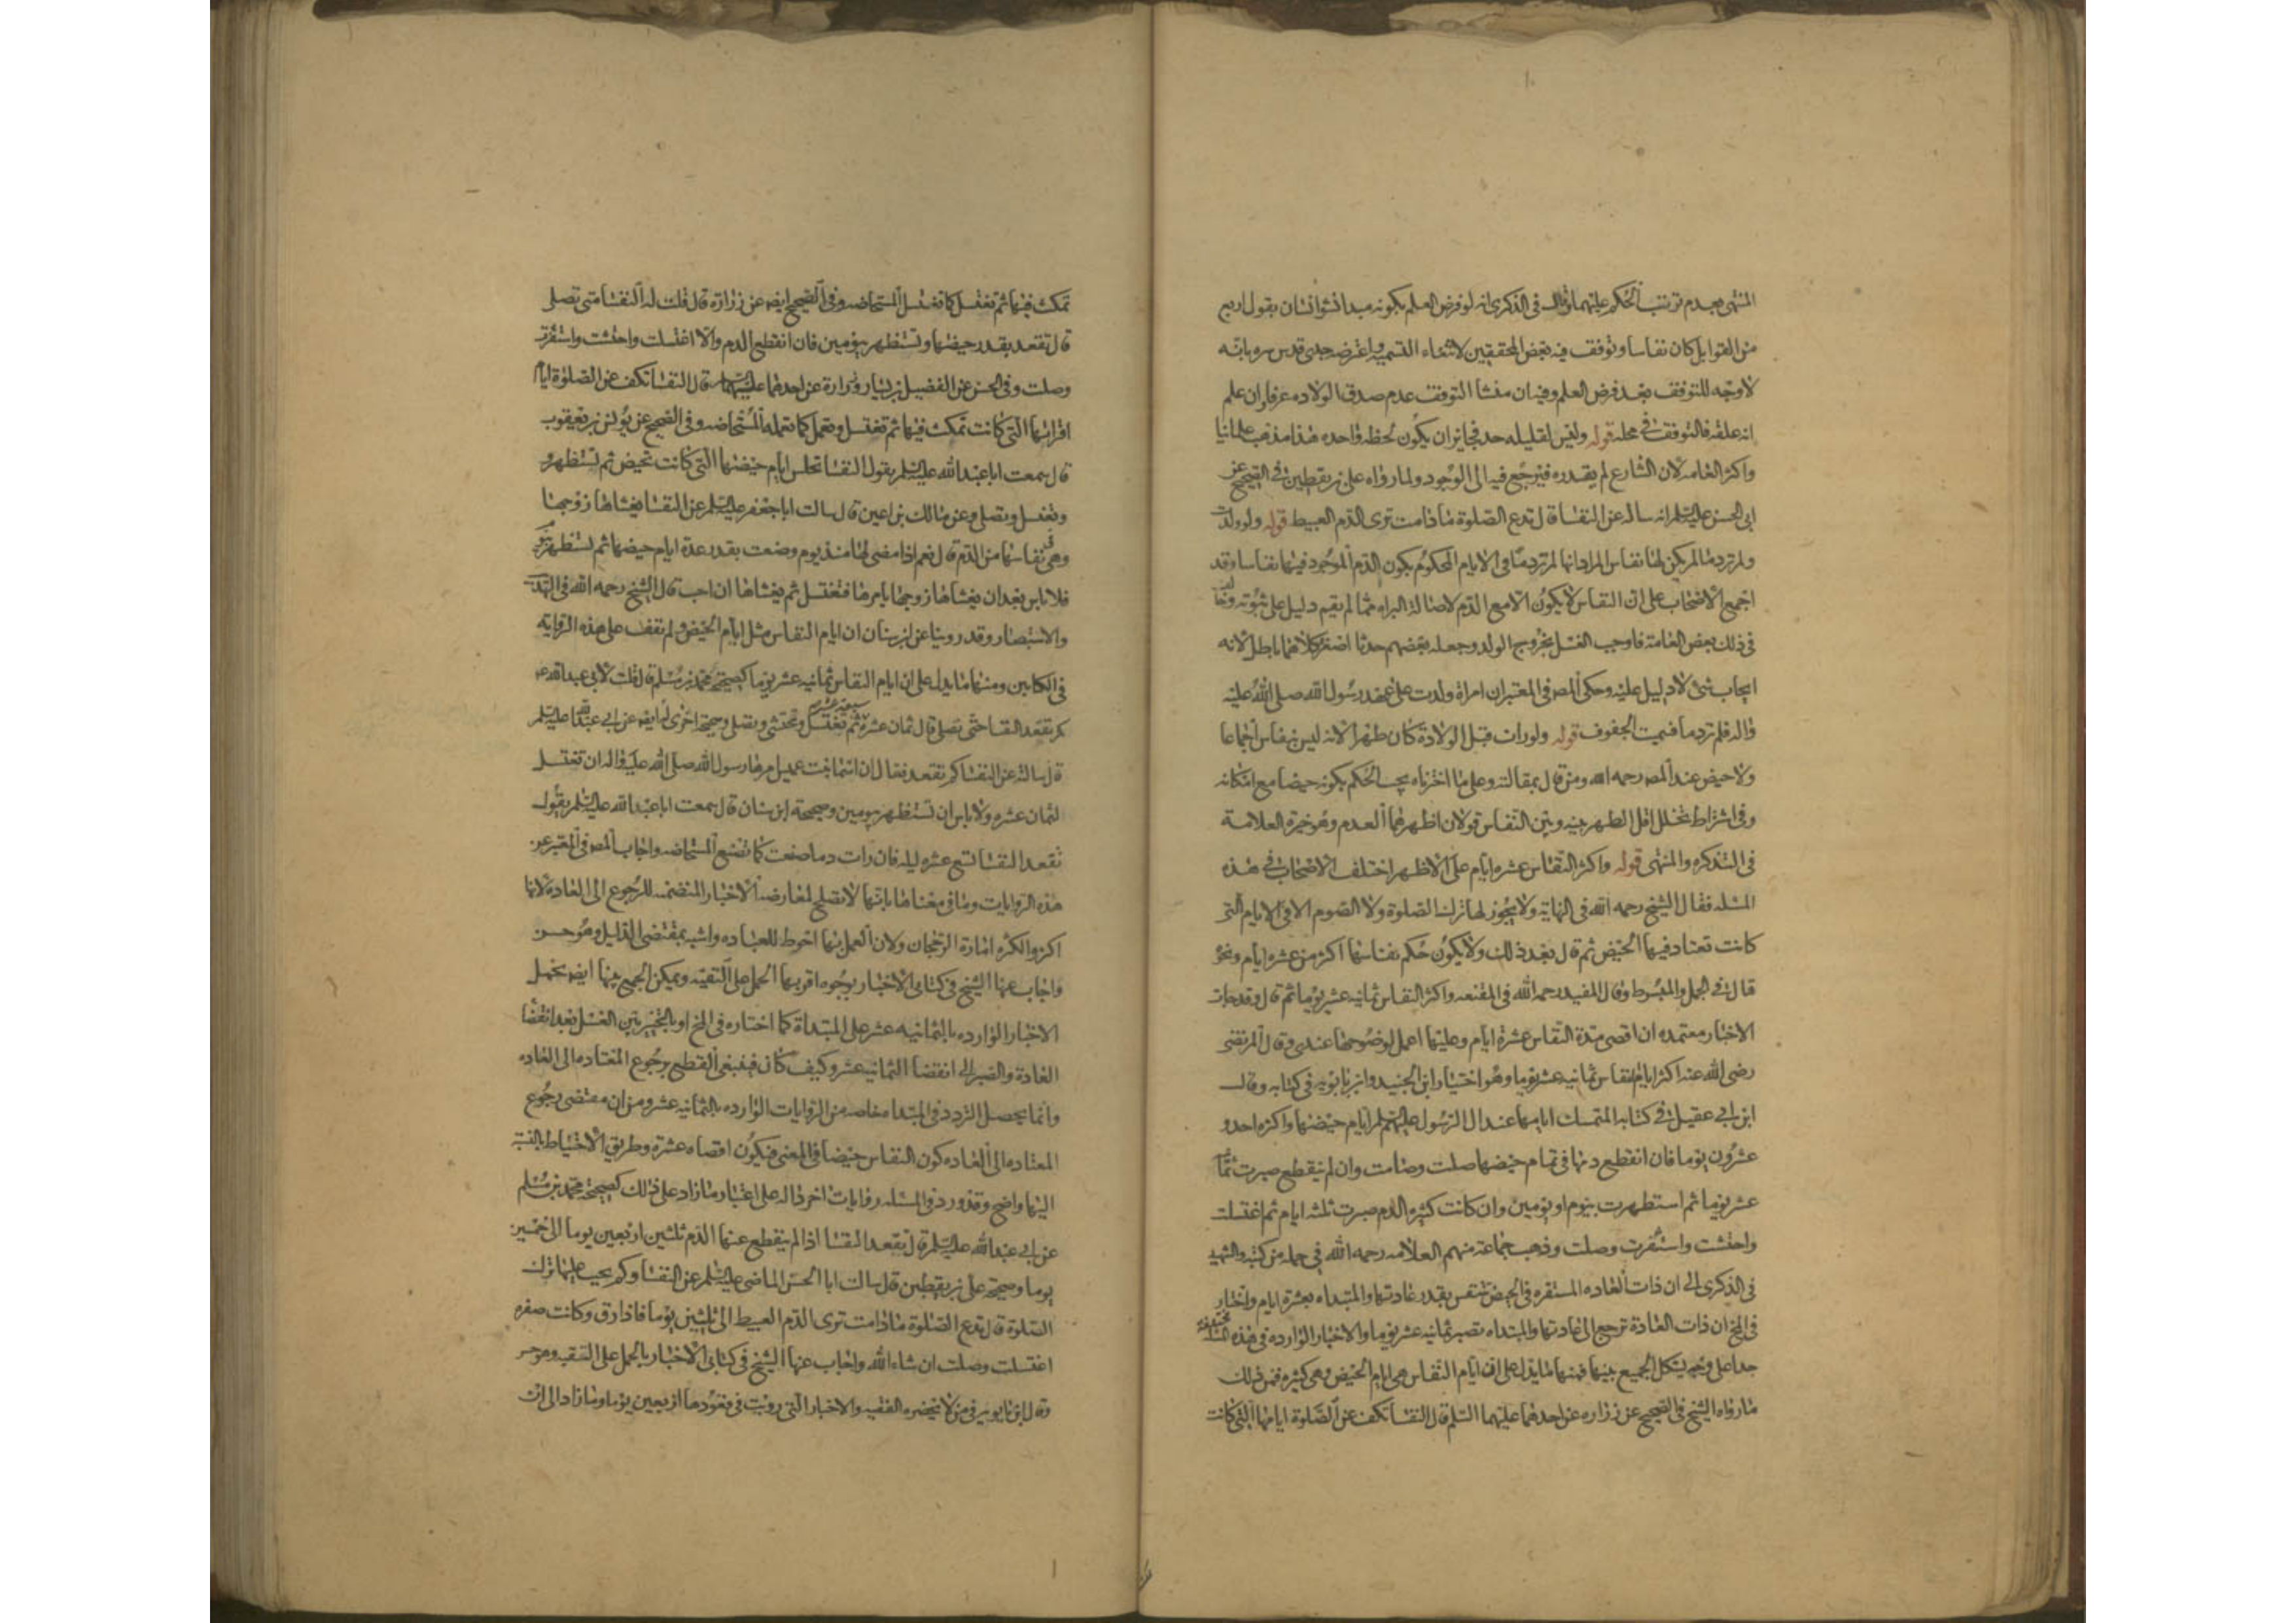 المنتهى بعدم ترتب الحكم عليهما وقال في الذكرى انه لو فرض العلم بكونه مبدا نشو انسان بقول اربع
من القوابل كان نفاسا وتوقف فيه بعض المحققين لانتفاء التسمية واعترضه جدي قدس سره بانه
لا وجه للتوقف بعد فرض العلم وفيه ان منشا التوقف عدم صدق الولاده عرفا وان علم
انه علقه فالتوقف في محله قوله وليس لقليله حد فجايز ان يكون لحظه واحده هذا مذهب علمائنا
واكثر العامه لان الشارع لم يقدره فيرجع فيه الى الوجود ولما رواه علي بن يقطين في الصحيح عن
ابي الحسن عليه السلم انه ساله عن النفسا قال تدع الصلوة ما دامت ترى الدم العبيط قوله ولو ولدت
ولم تر دما لم يكن لها نفاس المراد انها لم تر دما في الايام المحكوم بكون الدم الموجود فيها نفاسا وقد
اجمع الاصحاب على ان النفاس لا يكون الا مع الدم لاصالة البراه مما لم يقم دليل على ثبوته وخالف
في ذلك بعض العامة فاوجب الغسل بخروج الولد وجعله بعضهم حدثا اصغر وكلاهما باطل لانه
ايجاب شئ لا دليل عليه وحكى المص في المعتبر ان امراة ولدت على عهد رسول الله صلى الله عليه
واله فلم تر دما فسميت الجفوف قوله ولو رات قبل الولادة كان طهرا لانه ليس بنفاس اجماعا
ولا حيض عند المص رحمه الله ومن قال بمقالته وعلى ما اخترناه يجب الحكم بكونه حيضا مع امكانه
وفي اشتراط تخلل اقل الطهر بينه وبين النفاس قولان اظهرهما العدم وهو خيرة العلامة
في التذكره والمنتهى قوله واكثر النفاس عشره ايام على الاظهر اختلف الاصحاب في هذه
المسله فقال الشيخ رحمه الله في النهاية ولا يجوز لها ترك الصلوة ولا الصوم الا في الايام التي
كانت تعتاد فيها الحيض ثم قال بعد ذلك ولا يكون حكم نفاسها اكثر من عشره ايام ونحوه
قال في الجمل والمبسوط وقال المفيد رحمه الله في المقنعه واكثر النفاس ثمانيه عشر يوما ثم قال وقد جات
الاخبار معتمده ان اقصى مدة النفاس عشرة ايام وعليها اعمل لوضوحها عندي وقال المرتضى
رضي الله عنه اكثر ايام النفاس ثمانيه عشر يوما وهو اختيار ابن الجنيد وابن بابويه في كتابه وقال
ابن ابي عقيل في كتابه المتمسك ايامها عند ال الرسول عليهم السلم ايام حيضها واكثره احد و
عشرون يوما فان انقطع دمها في تمام حيضها صلت وصامت وان لم ينقطع صبرت ثمانيه
عشر يوما ثم استظهرت بيوم او يومين وان كانت كثيره الدم صبرت ثلثه ايام ثم اغتسلت
واحتشت واستثفرت وصلت وذهب جماعة منهم العلامه رحمه الله في جمله من كتبه والشهيد
في الذكرى الى ان ذات العاده المستقره في الحيض تتنفس بقدر عادتها والمبتداه بعشرة ايام واختار
في المخ ان ذات العادة ترجع الى عادتها والمبتداه تصبر ثمانيه عشر يوما والاخبار الوارده في هذه المسله مختلفة
جدا على وجه يشكل الجمع بينها فمنها ما يدل على ان ايام النفاس هي ايام الحيض وهي كثيره فمن ذلك
ما رواه الشيخ في الصحيح عن زراره عن احدهما عليهما السلم قال النفسا تكف عن الصلوة ايامها التي كانت
تمكث فيها ثم تغتسل كما تغتسل المستحاضه وفي الصحيح ايض عن زرارة قال قلت له النفسا متى تصلي
قال تقعد بقدر حيضها وتستظهر بيومين فان انقطع الدم والا اغتسلت واحتشت واستثفرت
وصلت وفي الحسن عن الفضيل بن يسار وزرارة عن احدهما عليهما السلم قال النفسا تكف عن الصلوة ايام
اقرائها التي كانت تمكث فيها ثم تغتسل وتعمل كما تعمله المستحاضه وفي الصحيح عن يونس بن يعقوب
قال سمعت ابا عبد الله عليه السلم يقول النفسا تجلس ايام حيضها التي كانت تحيض ثم تستظهر و
وتغتسل وتصلي وعن مالك بن اعين قال سالت ابا جعفر عليه السلم عن النفسا يغشاها زوجها
وهي في نفاسها من الدم قال نعم اذا مضى لها منذ يوم وضعت بقدر عدة ايام حيضها ثم تستظهر بيوم
فلا باس بعد ان يغشاها زوجها يامرها فتغتسل ثم يغشاها ان احب قال الشيخ رحمه الله في التهذيب
والاستبصار وقد روينا عن ابن سنان ان ايام النفاس مثل ايام الحيض ولم نقف على هذه الرواية
في الكتابين ومنها ما يدل على ان ايام النفاس ثمانيه عشر يوما كصحيحة محمد بن مسلم قال قلت لابي عبد الله ع
كم تقعد النفسا حتى تصلي قال ثمان عشره سبع عشره ثم تغتسل وتحتشي وتصلي وصحيحة اخرى له ايض عن ابي عبد الله عليه السلم
قال سالته عن النفسا كم تقعد فقال ان اسما بنت عميس امرها رسول الله صلى الله عليه واله ان تغتسل
لثمان عشره ولا باس ان تستظهر بيومين وصحيحة ابن سنان قال سمعت ابا عبد الله عليه السلم يقول
تقعد النفسا تسع عشره ليله فان رات دما صنعت كما تصنع المستحاضه واجاب المص في المعتبر عن
هذه الروايات وما في معناها بانها لا تصلح لمعارضة الاخبار المتضمنه للرجوع الى العادة لانها
اكثر والكثره امارة الرجحان ولان العمل بها احوط للعباده واشبه بمقتضى الدليل وهو حسن
واجاب عنها الشيخ في كتابي الاخبار بوجوه اقربها الحمل على التقيه ويمكن الجمع بينها ايض بحمل
الاخبار الوارده بالثمانيه عشر على المبتداة كما اختاره في المخ او بالتخيير بين الغسل بعد انقضا
العادة والصبر الى انقضا الثمانيه عشر وكيف كان فينبغي القطع برجوع المعتاده الى العاده
وانما يحصل التردد في المبتداه خاصه من الروايات الوارده بالثمانيه عشر ومن ان مقتضى رجوع
المعتاده الى العاده كون النفاس حيضا في المعنى فيكون اقصاه عشرة وطريق الاحتياط بالنسبة
اليها واضح وقد ورد في المسله روايات اخر داله على اعتبار ما زاد على ذلك كصحيحة محمد بن مسلم
عن ابي عبد الله عليه السلم قال تقعد النفسا اذا لم ينقطع عنها الدم ثلثين اربعين يوما الى خمسين
يوما وصحيحة علي بن يقطين قال سالت ابا الحسن الماضي عليه السلم عن النفسا وكم يجب عليها ترك
الصلوة قال تدع الصلوة ما دامت ترى الدم العبيط الى ثلثين يوما فاذا رق وكانت صفره
اغتسلت وصلت ان شاء الله واجاب عنها الشيخ في كتابي الاخبار بالحمل على التقيه وهو حسن
وقال ابن بابويه في من لا يحضره الفقيه والاخبار التي رويت في قعودها اربعين يوما وما زاد الى ان